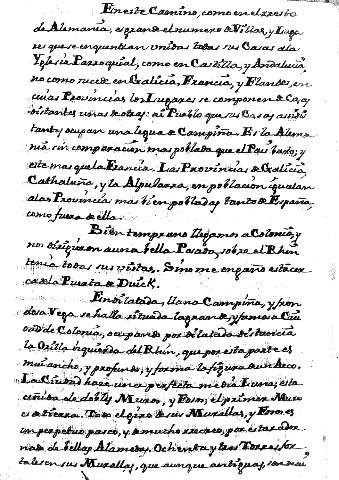 En este Camino, como en el resto
de Alemania, es grande el numero de Villas, y Luga-
res que se enquentran unidas todas sus Casas a la
Yglesia Parroquial, como en Castilla, y Andalucia,
no como sucede en Galicia, Francia, y Flandes, en
cuias Provincias los Lugares se componen de Casas
distantes unas de otras: ai Pueblo que sus Casas
ocupan una legua de Campiña. Es la Alema-
nia sin comparacion mas poblada que el Pais baxo; y
este mas que la Francia. Las Provincias de Galicia,
Cathaluña, y la Alpuxarra, en poblacion igualan
a las Provincias mas bien pobladas tanto de España,
como fuera de ella.
Bien temprano llegamos a Colonia, y
nos dirigieron a una bella Posada, sobre el Rhin
tenia todas sus vistas. Sino me engaño esta cer-
ca de la Puerta de Duick.
En dilatada, llana Campiña, y fron-
dosa Vega se halla situada la grande, y famosa Ciu-
dad de Colonia, ocupando por dilatada distancia
la Orilla izquierda del Rhin, que por esta parte es
mui ancho, y profundo, y forma la figura de un Arco.
La Ciudad hace una perfecta media Luna; esta
ceñida de dobles Muros, y Foso, el primer Muro
es de tierra. Todo el giro de sus Murallas, y Foso es
un perpetuo paseo, y de mucho recreo, por estar ador-
nado de bellas Alamedas. Ochenta y tres Torres for-
talecen sus Murallas, que aunque antiguas, son mui